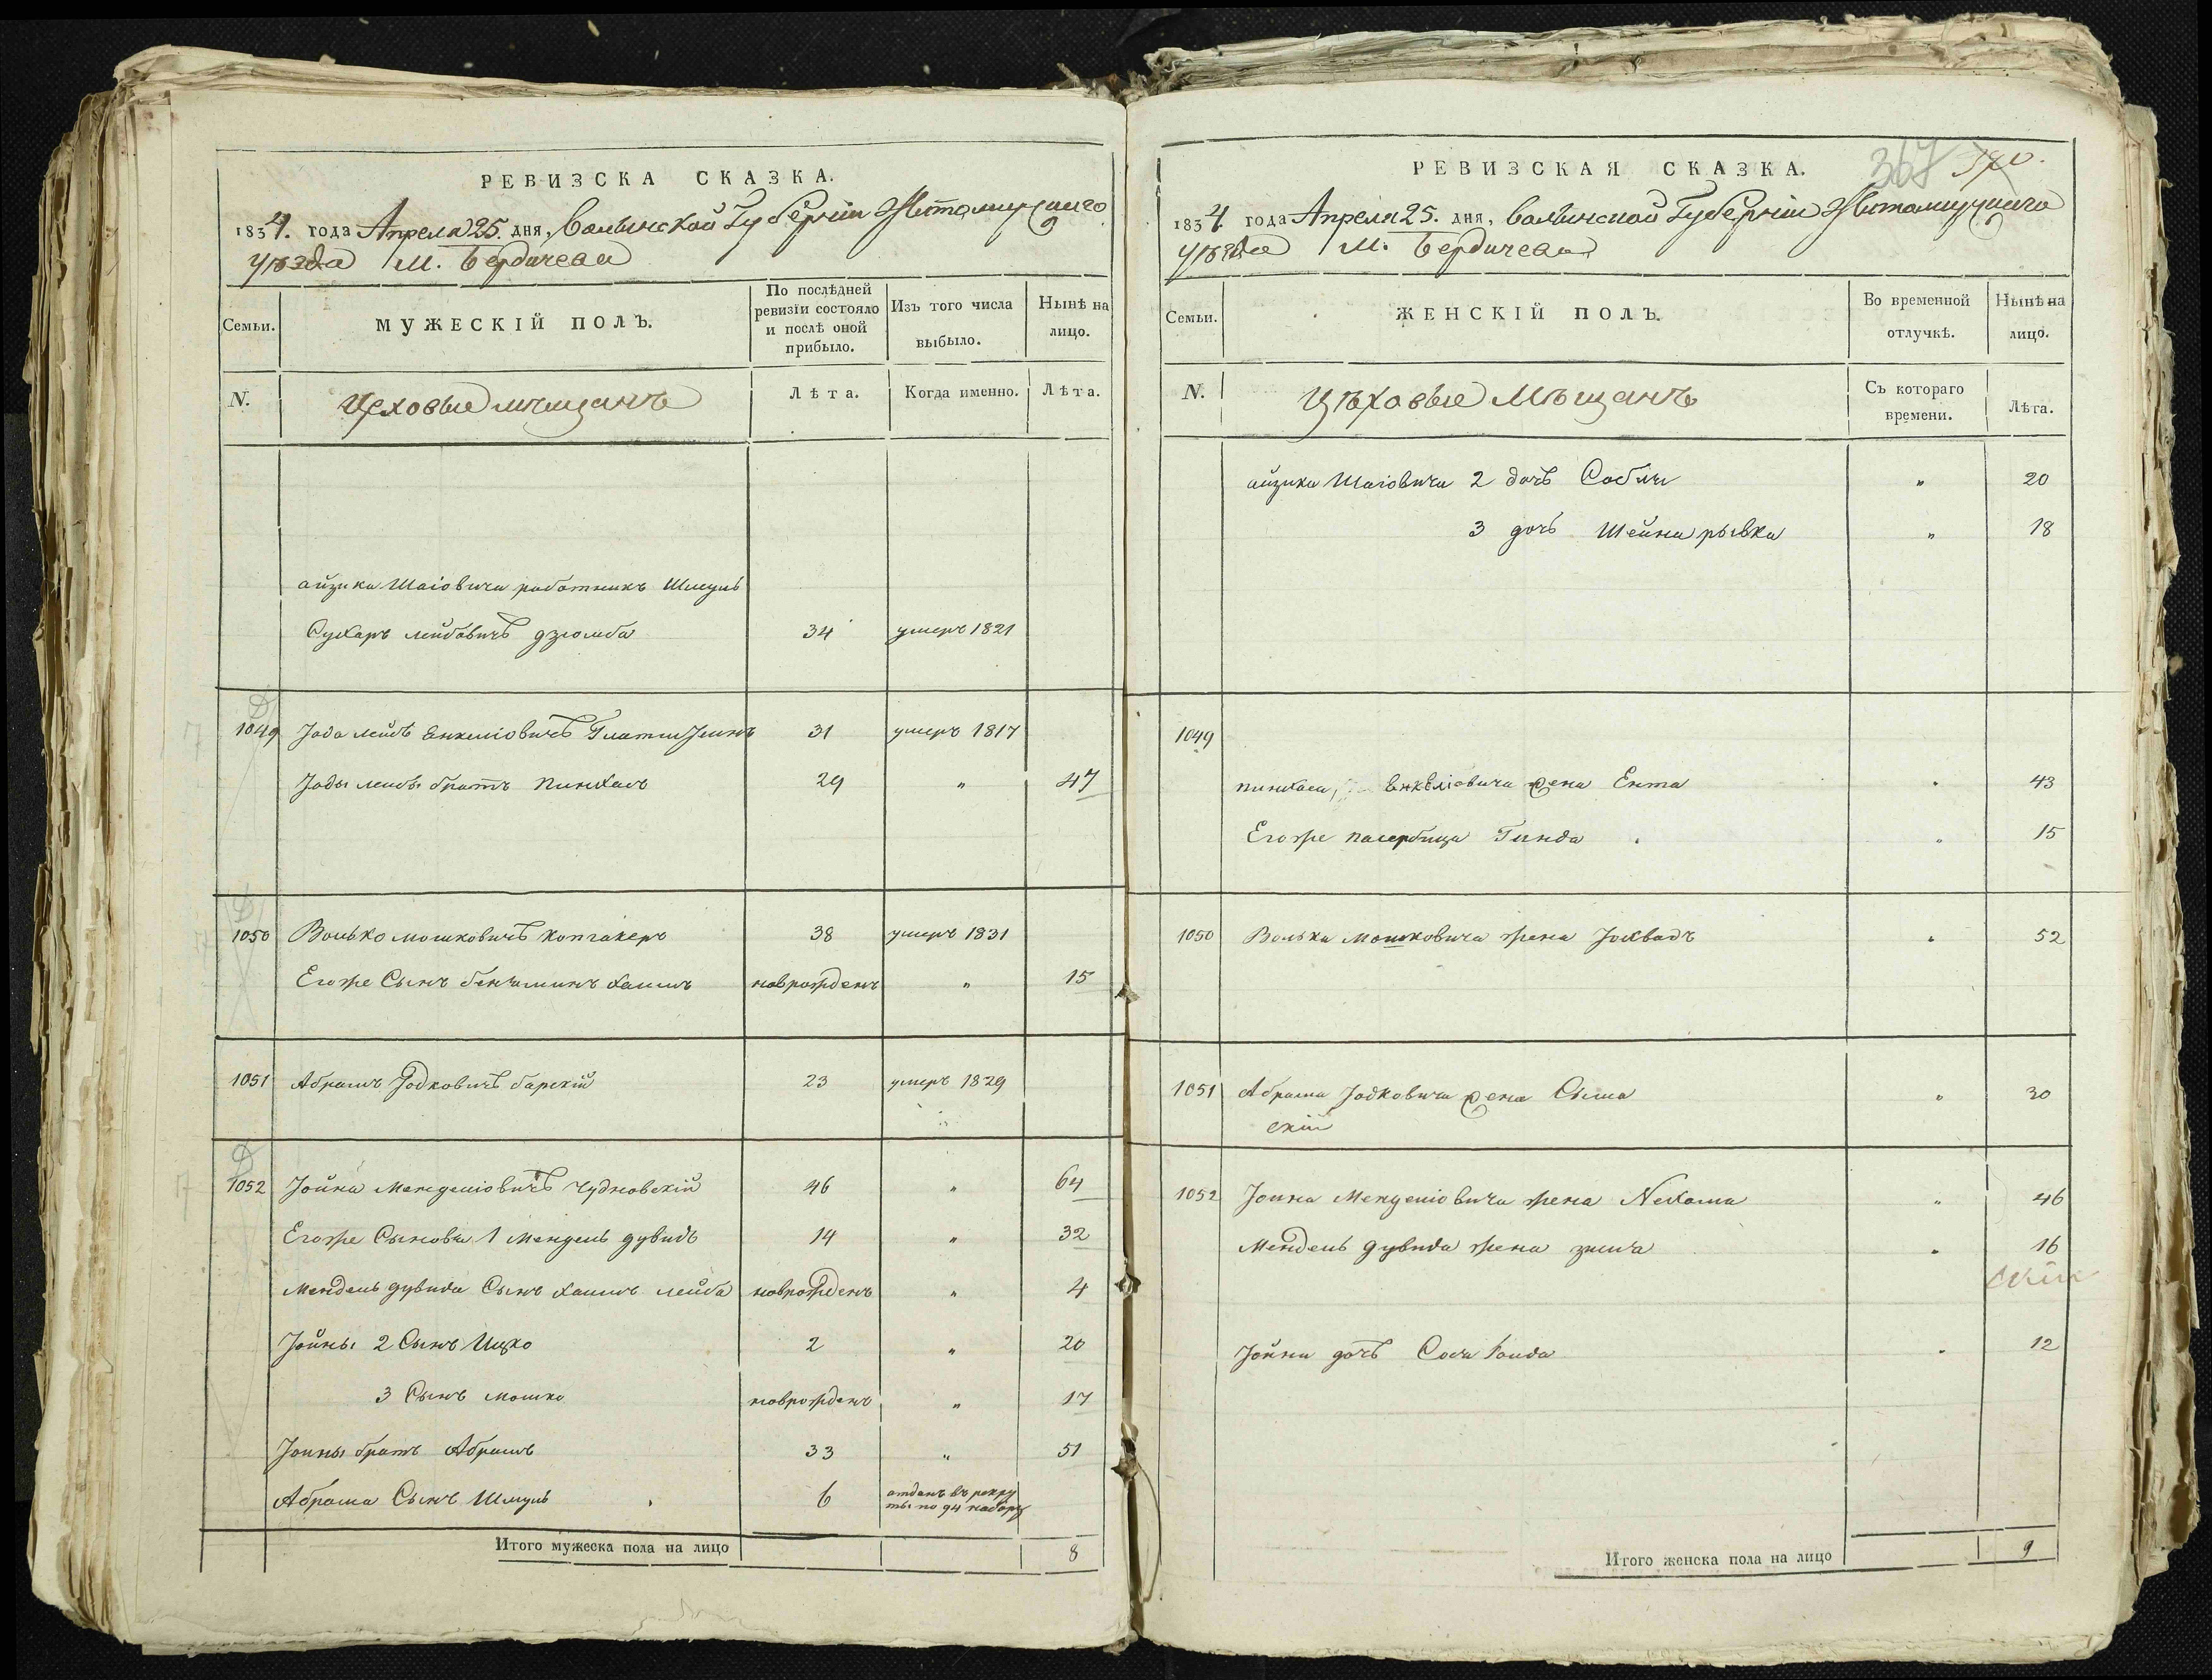 РЕВИЗСКА СКАЗКА.
1834. года Апреля 25. дня, Волынской Губерніи Житомирскаго
уѣзда М. Бердичева
Семьи.
МУЖЕСКІЙ ПОЛЪ.
По послѣдней
ревизіи состояло
и послѣ оной
прибыло.
Изъ того числа
выбыло.
Нынѣ на
лицо.
N.
Цеховые мѣщанъ
Лѣта.
Когда именно.
Лѣта.
айзика Шаіовича работникъ Шмуль
Сухаръ лейбовичъ дзюмба 34 умеръ 1821
1049 Іода лейбъ Енкеліовичъ 31 умеръ 1817
Іоды лейбы братъ Пинхасъ 29 " 47
1050 Волько мошковичъ копгакеръ 38 умеръ 1831
Егоже Сынъ беньяминъ хаимъ новрожденъ " 15
1051 Абрамъ Іодковичъ барскій 23 умеръ 1829
1052 Іойна Менделіовичъ Чудновскій 46 " 64
Егоже Сыновья 1 Мендель дувидъ 14 " 32
Мендель дувида Сынъ хаимъ лейба новрожденъ " 4
Іойны 2 Сынъ Ицко 2 " 20
3 Сынъ мошко новрожденъ " 17
Іоины братъ Абрамъ 33 " 51
Абрама Сынъ Шмуль 6 отданъ въ рекру
ты по 94 набору
Итого мужеска пола на лицо 8
РЕВИЗСКАЯ СКАЗКА.
367
1834 года Апреля 25. дня, Волынской Губерніи Житомирскаго
уѣзда М. Бердичева
Семьи.
ЖЕНСКІЙ ПОЛЪ.
Во временной
отлучкѣ.
Нынѣ на
лицо.
N.
Цѣховые Мѣщанъ
Съ котораго
времени.
Лѣта.
айзика Шаіовича 2 дочь Собля " 20
3 дочь Шейна рывка " 18
1049
пинхаса Енкеліовича жена Ента " 43
Егоже пасербица Гинда " 15
1050 Волька Мошковича жена Іохвадъ " 52
1051 Абрама Іодковича жена Сыма " 30
скій
1052 Іоина Менделіовича жена Нехама " 46
Мендель дувида жена злата " 16
скій
Іойни дочь Сося " 12
Итого женска пола на лицо 9